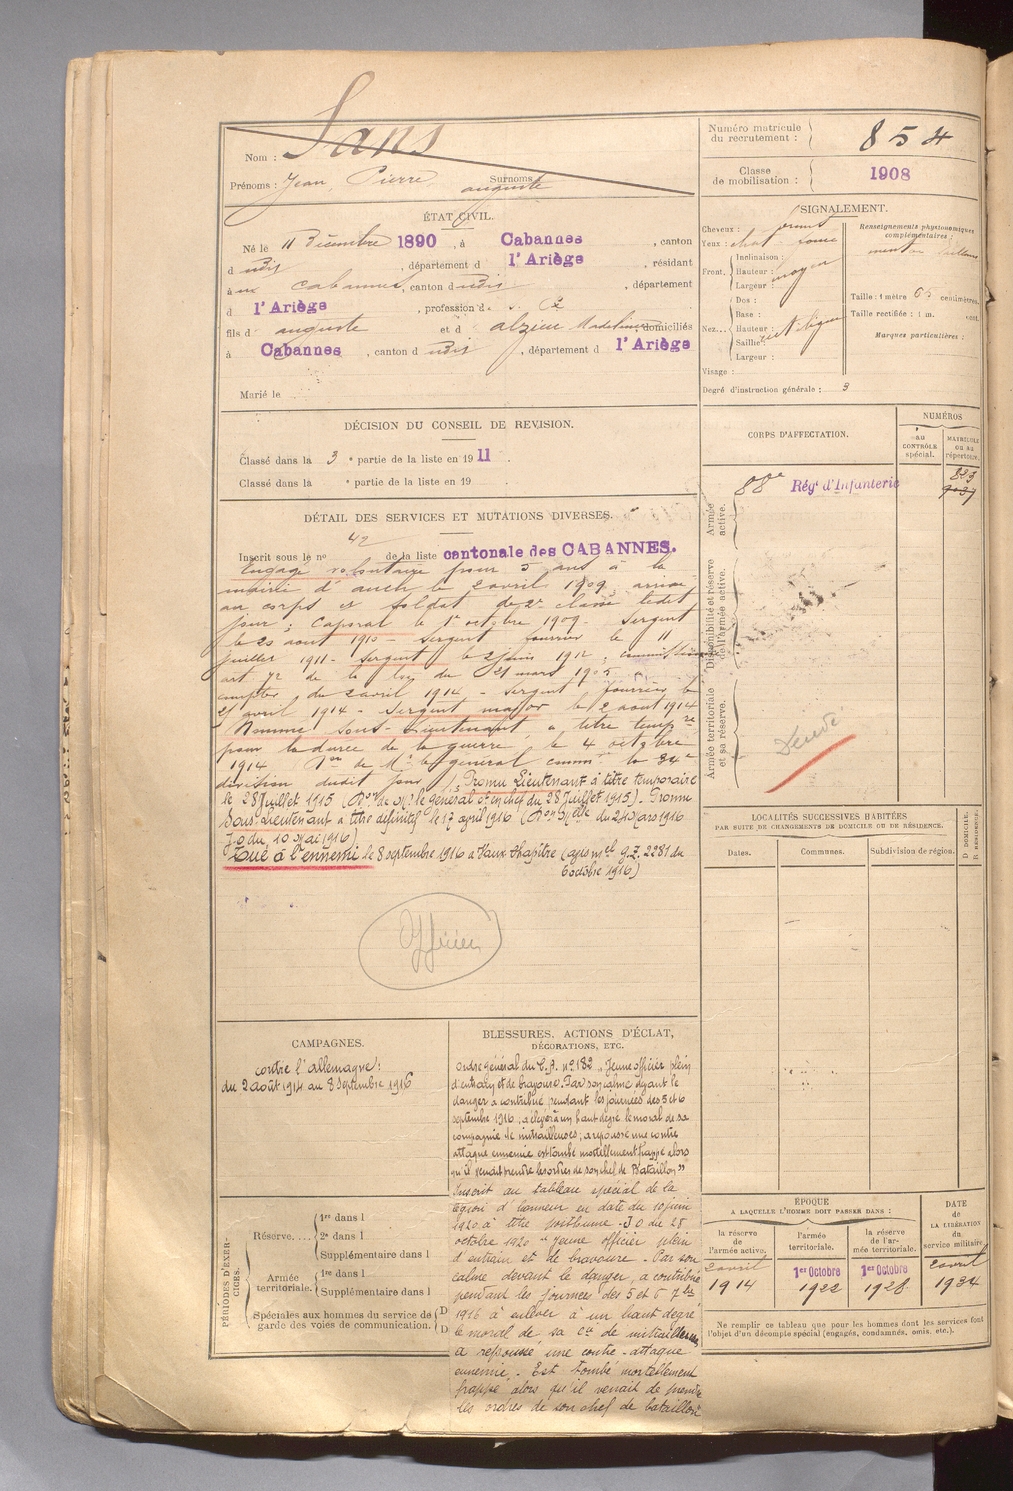 Nom : Sans
Prénoms : Jean Pierre auguste Surnoms
ÉTAT CIVIL.
Né le 11 Décembre 1890, à Cabannes, canton
d udit, département d l'Ariège, résidant
à Cabannes, canton d udit, département
d l'Ariège, profession d
fils d auguste et d alzieu Madeleine domiciliés
à Cabannes, canton d udit, département d l'Ariège
Marié le
DÉCISION DU CONSEIL DE REVISION.
Classé dans la 3e partie de la liste en 1911.
Classé dans la e partie de la liste en 19
DÉTAIL DES SERVICES ET MUTATIONS DIVERSES.
Inscrit sous le no 42 de la liste cantonale des CABANNES.
Engagé volontaire pour 5 ans à la
mairie d'auch le 2 avril 1909, arrivé
au corps et soldat de 2e classe ledit
jour ; Caporal le 1er octobre 1909 - Sergent
le 20 aout 1910 - Sergent fourrier le 11
juillet 1911 - Sergent le 2 juin 1912 ;
art 72 de la loi du 21 mars 1905 à
compter du 2 avril 1914 - Sergent fourrier le
21 avril 1914 - Sergent major le 2 aout 1914
Nommé Sous-Lieutenant, à titre tempre
pour la durée de la guerre, le 4 octobre
1914 Don de Mr le général commt la 34e
division dudit jour, Promu Lieutenant à titre temporaire
le 28 Juillet 1915 (Don de Mr le général ct en chef du 28 Juillet 1915). Promu
Sous-Lieutenant à titre définitif le 17 avril 1916 (Don Melle du 24 Mars 1916
J.O du 10 Mai 1916)
Tué à l'ennemi le 8 septembre 1916 à Vaux Chapitre (avis mel q.Z. 2281 du
6 octobre 1916)
Officier
CAMPAGNES.
contre l'allemagne :
du 2 août 1914 au 8 Septembre 1916
PÉRIODES D'EXERCICES.
Réserve.... 1re dans l
2e dans l
Supplémentaire dans l
Armée territoriale. 1re dans l
Supplémentaire dans l
Spéciales aux hommes du service de
garde des voies de communication. D
D
BLESSURES, ACTIONS D'ÉCLAT,
DÉCORATIONS, ETC.
Ordre général du C.A. no 182 "Jeune officier plein
d'entrain et de bravoure. Par son calme devant le
danger a contribué pendant les journées des 5 et 6
septembre 1916, à élever à un haut degré le moral de sa
compagnie de mitrailleuses ; a repoussé une contre
attaque ennemie est tombé mortellement frappé alors
qu'il venait prendre les ordres de son chef de Bataillon"
Inscrit au tableau spécial de la
légion d'honneur en date du 10 juin
1920 à titre posthume - J O du 28
octobre 1920 "Jeune officier plein
d'entrain et de bravoure - Par son
calme devant le danger, a contribué
pendant les journées des 5 et 6 7bre
1916 à enlever à un haut degré
le moral de sa Cie de mitrailleuses
a repoussé une contre-attaque
ennemie - Est tombé mortellement
frappé alors qu'il venait de prendre
les ordres de son chef de bataillon"
Numéro matricule
du recrutement : 854
Classe
de mobilisation : 1908
SIGNALEMENT.
Cheveux :
Yeux :
Front. Inclinaison :
Hauteur : moyen
Largeur :
Nez... Dos :
Base :
Hauteur :
Saillie :
Largeur :
Visage :
Degré d'instruction générale : 3
Renseignements physionomiques
complémentaires :
menton saillant
Taille : 1 mètre 65 centimètres.
Taille rectifiée : 1 m. cent.
Marques particulières :
CORPS D'AFFECTATION.
NUMÉROS
au
CONTRÔLE
spécial.
MATRICULE
ou au
répertoire.
Armée
active.
88e Régt d'Infanterie
Disponibilité et réserve
de l'armée active.
Armée territoriale
et sa réserve.
LOCALITÉS SUCCESSIVES HABITÉES
PAR SUITE DE CHANGEMENTS DE DOMICILE OU DE RÉSIDENCE.
D DOMICILE.
R RÉSIDENCE.
Dates.
Communes.
Subdivision de région.
ÉPOQUE
A LAQUELLE L'HOMME DOIT PASSER DANS :
la réserve
de l'armée active.
l'armée
territoriale.
la réserve
de l'armée territoriale.
DATE
de
LA LIBÉRATION
du
service militaire.
2 avril 1914
1er Octobre 1922
1er Octobre 1928
2 avril 1934
Ne remplir ce tableau que pour les hommes dont les services font
l'objet d'un décompte spécial (engagés, condamnés, omis, etc.).